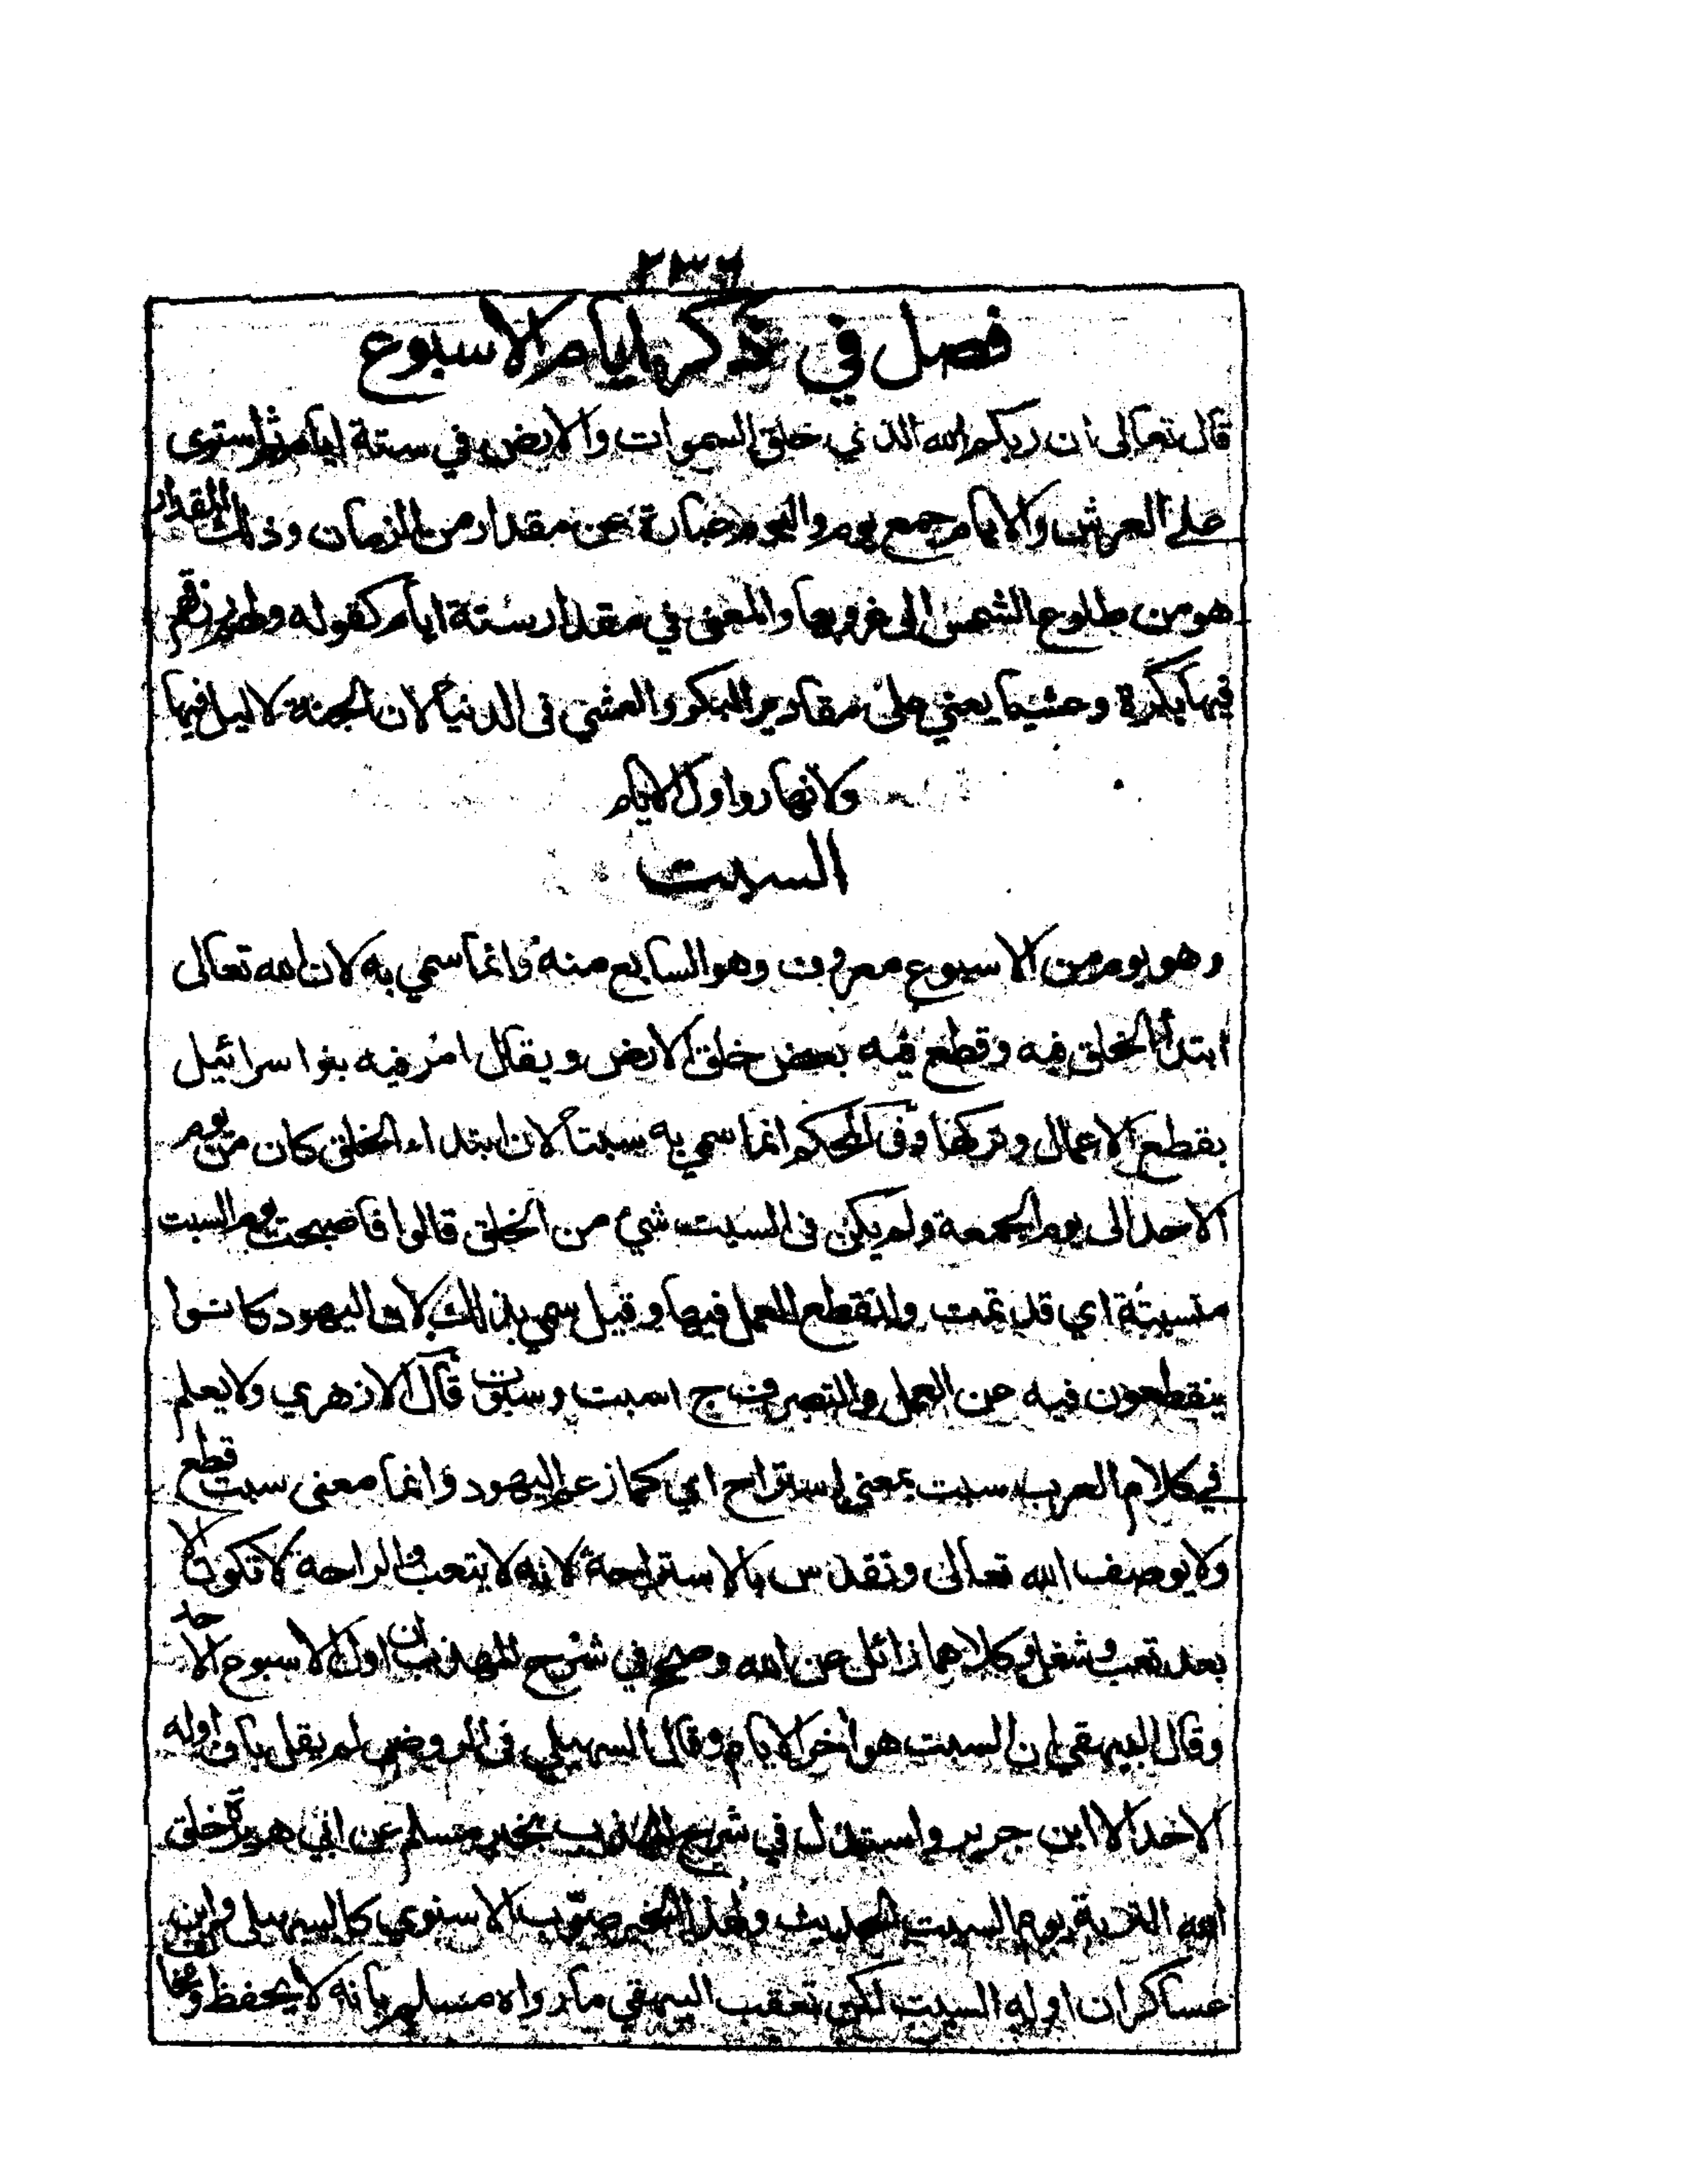 ٢٣٦
فصل في ذكر ايام الاسبوع
قال تعالى ان ربكم الله الذي خلق السموات والارض في ستة ايام ثم استوى
على العرش والايام جمع يوم واليوم عبارة عن مقدار من الزمان وذلك المقدار
هو من طلوع الشمس الى غروبها والمعنى في مقدار ستة ايام كقوله ولهم رزقهم
فيها بكرة وعشيا يعني على مقادير البكر والعشي في الدنيا لان الجنة لا ليل فيها
ولا نهار واول الايام
السبت
وهو يوم من الاسبوع معروف وهو السابع منه وانما سمي به لان الله تعالى
ابتدأ الخلق فيه وقطع فيه بعض خلق الارض ويقال امر فيه بنوا سرائيل
بقطع الاعمال وتركها وفي المحكم انما سمي به سبتا لان ابتداء الخلق كان من يوم
الاحد الى يوم الجمعة ولم يكن في السبت شيء من الخلق قالوا فاصبحت يوم السبت
منسبتة اي قد تمت وانقطع العمل فيها وقيل سمي بذلك لان اليهود كانوا
ينقطعون فيه عن العمل والتصرف ج اسبت وسبوت قال الازهري ولا يعلم
في كلام العرب سبت بمعنى استراح اي كما زعم اليهود وانما معنى سبت قطع
ولا يوصف الله تعالى وتقدس بالاستراحة لانه لا يتعب والراحة لا تكون الا
بعد تعب وشغل وكلاهما زائل عن الله وصحح في شرح المهذب ان اول الاسبوع الاحد
وقال البيهقي ان السبت هو اخر الايام وقال السهيلي في الروض لم يقل بان اوله
الاحد الا ابن جرير واستدل في شرح المهذب بخبر مسلم عن ابي هريرة خلق
الله التربة يوم السبت الحديث ولهذا الخبر صوب الاسنوي كالسهيلي وابن
عساكر ان اوله السبت لكن تعقب البيهقي ما رواه مسلم بانه لا يحفظ ومخالف